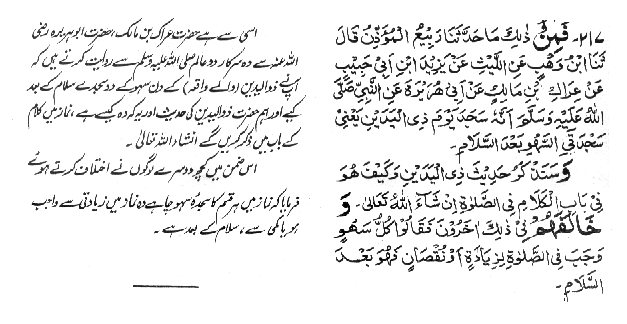 ۲۱۷۔ فَمِنْ ذٰلِكَ مَا حَدَّثَنَا رَبِيْعُ الْمُؤَذِّنُ قَالَ
ثَنَا ابْنُ وَهْبٍ عَنِ اللَّيْثِ عَنْ يَزِيْدَ ابْنِ اَبِيْ حَبِيْبٍ
عَنْ عِرَاكِ بْنِ مَالِكٍ عَنْ اَبِيْ هُرَيْرَةَ عَنِ النَّبِيِّ صَلَّى
اللهُ عَلَيْهِ وَسَلَّمَ اَنَّهُ سَجَدَ يَوْمَ ذِى الْيَدَيْنِ يَعْنِيْ
سَجْدَتَيِ السَّهْوِ بَعْدَ السَّلَامِ۔
وَسَنَذْكُرُ حَدِيْثَ ذِى الْيَدَيْنِ وَكَيْفَ هُوَ
فِيْ بَابِ الْكَلَامِ فِى الصَّلٰوةِ اِنْ شَاءَ اللهُ تَعَالٰى۔ وَ
خَالَفَهُمْ فِيْ ذٰلِكَ اٰخَرُوْنَ فَقَالُوْا كُلُّ سَهْوٍ
وَجَبَ فِى الصَّلٰوةِ لِزِيَادَةٍ اَوْ نُقْصَانٍ فَهُوَ بَعْدَ
السَّلَامِ۔
اسی سے ہے حضرت عراک بن مالک، حضرت ابوہریرہ رضی
اللہ عنہ سے وہ سرکار دو عالم صلی اللہ علیہ وسلم سے روایت کرتے ہیں کہ
آپ نے ذوالیدین (والے واقعہ) کے دن سہو کے دو سجدے سلام کے بعد
کیے اور ہم حضرت ذوالیدین کی حدیث اور یہ کہ وہ کیسے ہے، نماز میں کلام
کے باب میں ذکر کریں گے انشاء اللہ تعالیٰ۔
اس ضمن میں کچھ دوسرے لوگوں نے اختلاف کرتے ہوئے
فرمایا کہ نماز میں ہر قسم کا سجدہ سہو چاہے وہ نماز میں زیادتی سے واجب
ہو یا کمی سے، سلام کے بعد ہے۔